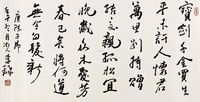 寶劍千金買生
平未許人懷君
萬里別持贈
結交親孤松宜
晚歲眾木愛芳
春已矣將何道
無令白髮新